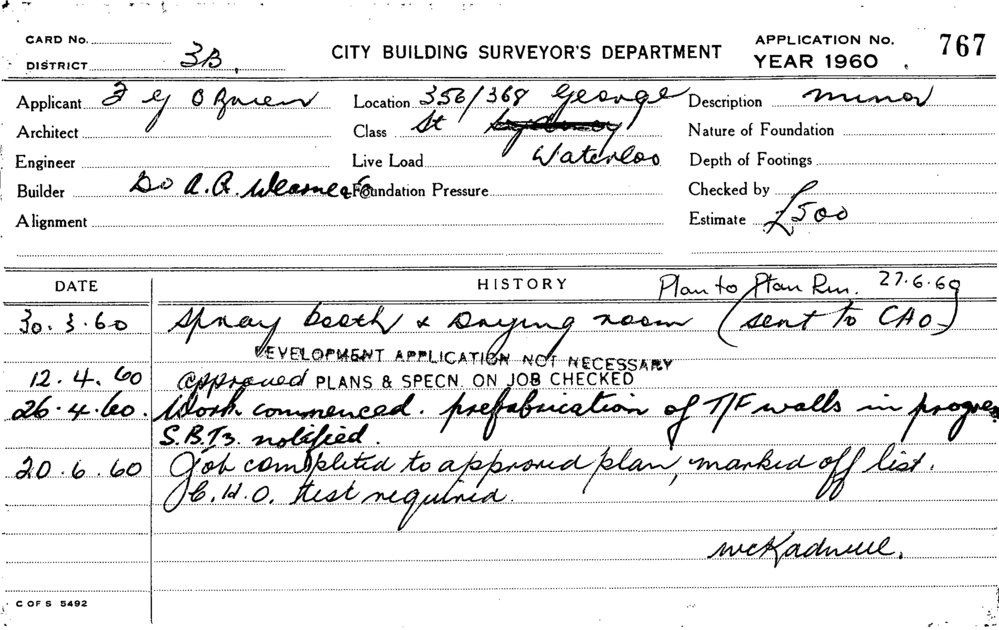 CARD No.
DISTRICT 3B.
CITY BUILDING SURVEYOR'S DEPARTMENT
APPLICATION No. 767
YEAR 1960
Applicant F G O'Brien
Location 356/368 George
Description minor
Architect
Class St Sydney
Nature of Foundation
Engineer
Live Load Waterloo
Depth of Footings
Builder Do A.R.
Foundation Pressure
Checked by
Alignment
Estimate £500
DATE
HISTORY
Plan to Plan Rm. 27.6.60
30.3.60 Spray booth & Drying room (sent to CHO)
DEVELOPMENT APPLICATION NOT NECESSARY
12.4.60 approved PLANS & SPECN. ON JOB CHECKED
26.4.60. Work commenced. prefabrication of T/F walls in progress
S.B.Tz. notified.
20.6.60 Job completed to approved plan, marked off list.
C.H.O. test required.
C OF S 5492